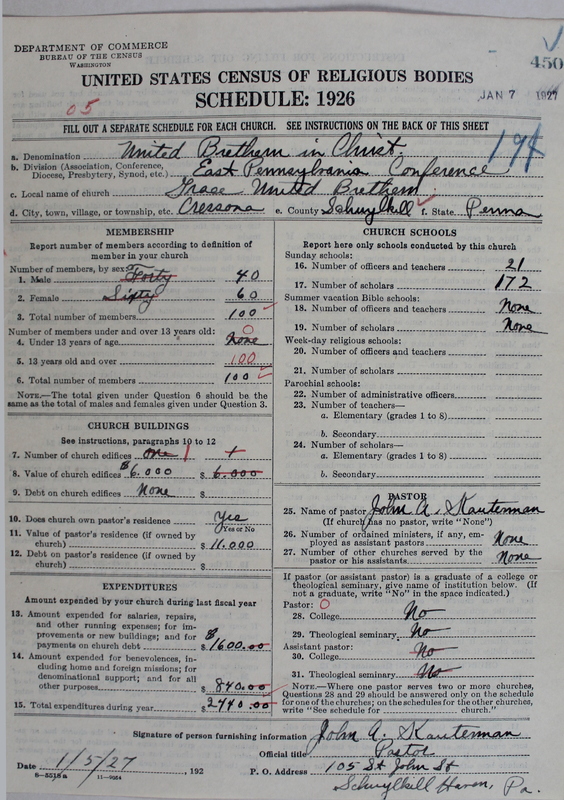 DEPARTMENT OF COMMERCE
BUREAU OF THE CENSUS
WASHINGTON
450
UNITED STATES CENSUS OF RELIGIOUS BODIES
SCHEDULE: 1926
JAN 7 1927
05
FILL OUT A SEPARATE SCHEDULE FOR EACH CHURCH. SEE INSTRUCTIONS ON THE BACK OF THIS SHEET
194
a. Denomination United Brethern in Christ.
b. Division (Association, Conference, Diocese, Presbytery, Synod, etc.) East Pennsylvania Conference
c. Local name of church Grace United Brethern
d. City, town, village, or township, etc. Cressona e. County Schuylkill f. State Penna
MEMBERSHIP
Report number of members according to definition of
member in your church
Number of members, by sex:
1. Male Forty 40
2. Female Sixty 60
3. Total number of members 100
Number of members under and over 13 years old:
4. Under 13 years of age None 0
5. 13 years old and over 100
6. Total number of members 100
NOTE.—The total given under Question 6 should be the
same as the total of males and females given under Question 3.
CHURCH BUILDINGS
See instructions, paragraphs 10 to 12
7. Number of church edifices one 1 1
8. Value of church edifices $6.000 $ 6.000
9. Debt on church edifices None $
10. Does church own pastor's residence Yes
Yes or No
11. Value of pastor's residence (if owned by
church) $ 11.000
12. Debt on pastor's residence (if owned by
church) $
EXPENDITURES
Amount expended by your church during last fiscal year
13. Amount expended for salaries, repairs,
and other running expenses; for im-
provements or new buildings; and for
payments on church debt $ 1600.00
14. Amount expended for benevolences, in-
cluding home and foreign missions; for
denominational support; and for all
other purposes $ 840.00
15. Total expenditures during year $ 2440.00
CHURCH SCHOOLS
Report here only schools conducted by this church
Sunday schools:
16. Number of officers and teachers 21
17. Number of scholars 172
Summer vacation Bible schools:
18. Number of officers and teachers None
19. Number of scholars None
Week-day religious schools:
20. Number of officers and teachers
21. Number of scholars
Parochial schools:
22. Number of administrative officers
23. Number of teachers—
a. Elementary (grades 1 to 8)
b. Secondary
24. Number of scholars—
a. Elementary (grades 1 to 8)
b. Secondary
PASTOR
25. Name of pastor John A. Kauterman
(If church has no pastor, write "None")
26. Number of ordained ministers, if any, em-
ployed as assistant pastors None
27. Number of other churches served by the
pastor or his assistants None
If pastor (or assistant pastor) is a graduate of a college or
theological seminary, give name of institution below. (If
not a graduate, write "No" in the space indicated.)
Pastor: 0
28. College No
29. Theological seminary No
Assistant pastor:
30. College No
31. Theological seminary No
NOTE.—Where one pastor serves two or more churches,
Questions 28 and 29 should be answered only on the schedule
for one of the churches; on the schedules for the other churches,
write "See schedule for church."
Signature of person furnishing information John A. Kauterman
Official title Pastor
Date 1/5/27 , 192
P. O. Address 105 St John St
8-5518a 11-9064
Schuylkill Haven, Pa.